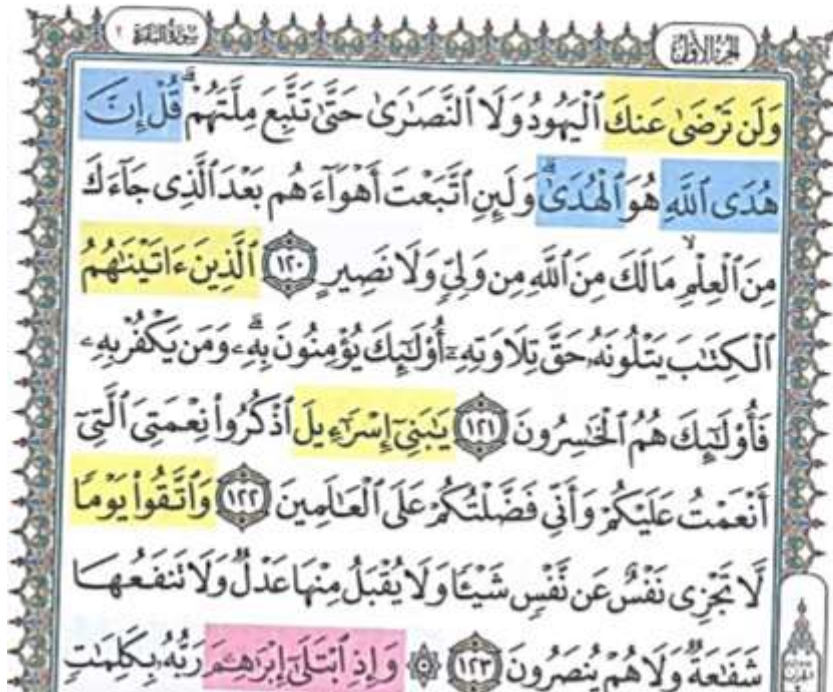 الجزء الأول
سورة البقرة ٢
وَلَن تَرْضَىٰ عَنكَ ٱلْيَهُودُ وَلَا ٱلنَّصَٰرَىٰ حَتَّىٰ تَتَّبِعَ مِلَّتَهُمْ ۗ قُلْ إِنَّ
هُدَى ٱللَّهِ هُوَ ٱلْهُدَىٰ ۗ وَلَئِنِ ٱتَّبَعْتَ أَهْوَآءَهُم بَعْدَ ٱلَّذِى جَآءَكَ
مِنَ ٱلْعِلْمِ ۙ مَا لَكَ مِنَ ٱللَّهِ مِن وَلِىٍّ وَلَا نَصِيرٍ ١٢٠ ٱلَّذِينَ ءَاتَيْنَٰهُمُ
ٱلْكِتَٰبَ يَتْلُونَهُۥ حَقَّ تِلَاوَتِهِۦٓ أُو۟لَٰٓئِكَ يُؤْمِنُونَ بِهِۦ ۗ وَمَن يَكْفُرْ بِهِۦ
فَأُو۟لَٰٓئِكَ هُمُ ٱلْخَٰسِرُونَ ١٢١ يَٰبَنِىٓ إِسْرَٰٓءِيلَ ٱذْكُرُوا۟ نِعْمَتِىَ ٱلَّتِىٓ
أَنْعَمْتُ عَلَيْكُمْ وَأَنِّى فَضَّلْتُكُمْ عَلَى ٱلْعَٰلَمِينَ ١٢٢ وَٱتَّقُوا۟ يَوْمًا
لَّا تَجْزِى نَفْسٌ عَن نَّفْسٍ شَيْـًٔا وَلَا يُقْبَلُ مِنْهَا عَدْلٌ وَلَا تَنفَعُهَا
شَفَٰعَةٌ وَلَا هُمْ يُنصَرُونَ ١٢٣ ۞ وَإِذِ ٱبْتَلَىٰٓ إِبْرَٰهِـۧمَ رَبُّهُۥ بِكَلِمَٰتٍ